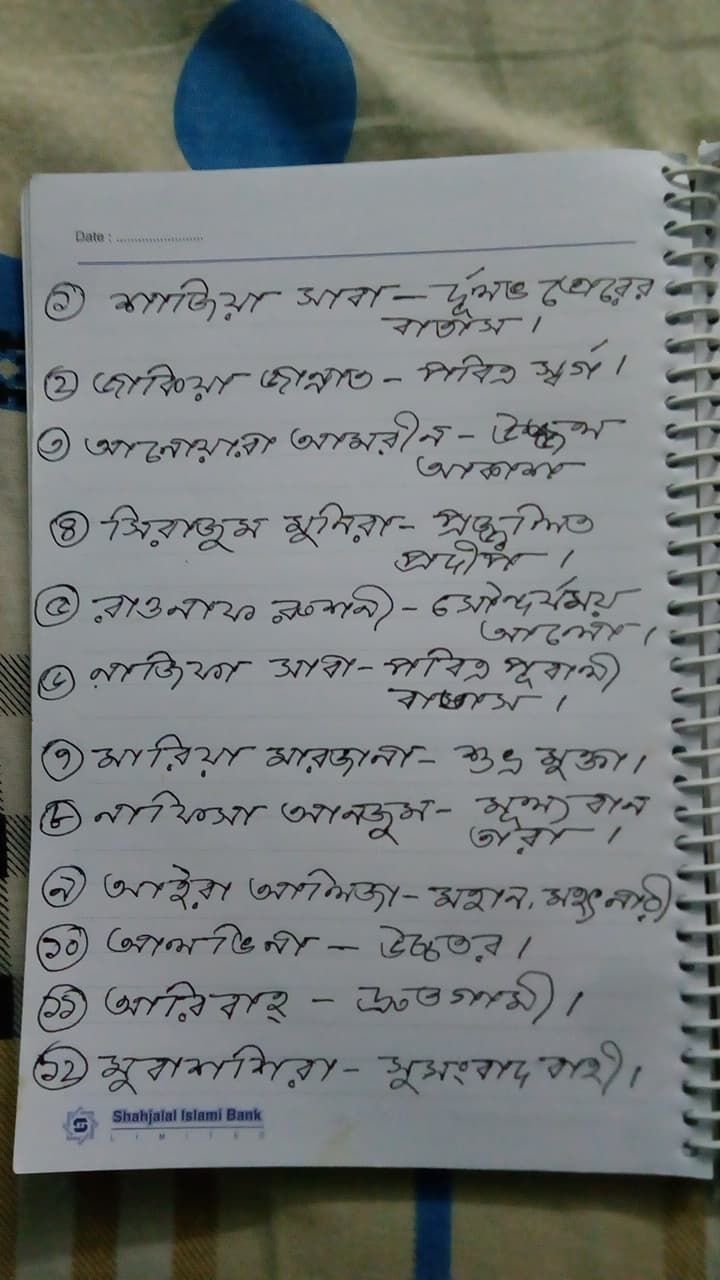 Date : ........................
১ শাজিয়া সাবা – দূর্লভ ভোরের
বাতাস।
২ জাকিয়া জান্নাত – পবিত্র স্বর্গ।
৩ আনোয়ারা আমরীন – উজ্জ্বল
আকাশ
৪ সিরাজুম মুনিরা – প্রজ্জ্বলিত
প্রদীপ।
৫ রাওনাফ রুশনী – সৌন্দর্যময়
আলো।
৬ নাজিফা সাবা – পবিত্র পূবালী
বাতাস।
৭ মারিয়া মারজানা – শুভ্র মুক্তা।
৮ নাফিসা আনজুম – মূল্যবান
তারা।
৯ আইরা আলিজা – মহান, মহৎ নারী
১০ আলভিনা – উচ্চতর।
১১ আরিবাহ্ – দ্রুতগামী।
১২ মুবাশশিরা – সুসংবাদ বাহী।
Shahjalal Islami Bank
LIMITED